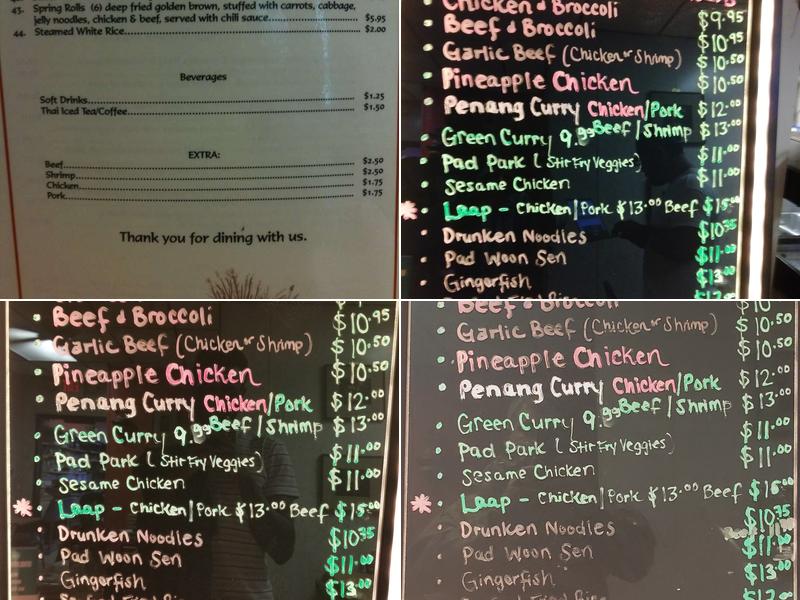 43. Spring Rolls (6) deep fried golden brown, stuffed with carrots, cabbage,
jelly noodles, chicken & beef, served with chili sauce $5.95
44. Steamed White Rice $2.00
Beverages
Soft Drinks $1.25
Thai Iced Tea/Coffee $1.50
EXTRA:
Beef $2.50
Shrimp $2.50
Chicken $1.75
Pork $1.75
Thank you for dining with us.
Chicken & Broccoli $9.95
Beef & Broccoli $10.95
Garlic Beef (Chicken or Shrimp) $10.50
Pineapple Chicken $10.50
Penang Curry Chicken/Pork $12.00
Green Curry 9.99 Beef/Shrimp $13.00
Pad Park (Stir Fry Veggies) $11.00
Sesame Chicken $11.00
Laap - Chicken/Pork $13.00 Beef $15.00
Drunken Noodles $10.95
Pad Woon Sen $11.00
Gingerfish $13.00
Beef & Broccoli $10.95
Garlic Beef (Chicken or Shrimp) $10.50
Pineapple Chicken $10.50
Penang Curry Chicken/Pork $12.00
Green Curry 9.99 Beef/Shrimp $13.00
Pad Park (Stir Fry Veggies) $11.00
Sesame Chicken $11.00
Laap - Chicken/Pork $13.00 Beef $15.00
Drunken Noodles $10.95
Pad Woon Sen $11.00
Gingerfish $13.00
Beef & Broccoli
Garlic Beef (Chicken or Shrimp) $10.50
Pineapple Chicken $10.50
Penang Curry Chicken/Pork $12.00
Green Curry 9.99 Beef/Shrimp $13.00
Pad Park (Stir Fry Veggies) $11.00
Sesame Chicken $11.00
Laap - Chicken/Pork $13.00 Beef $15.00
Drunken Noodles $10.95
Pad Woon Sen $11.00
Gingerfish $13.00